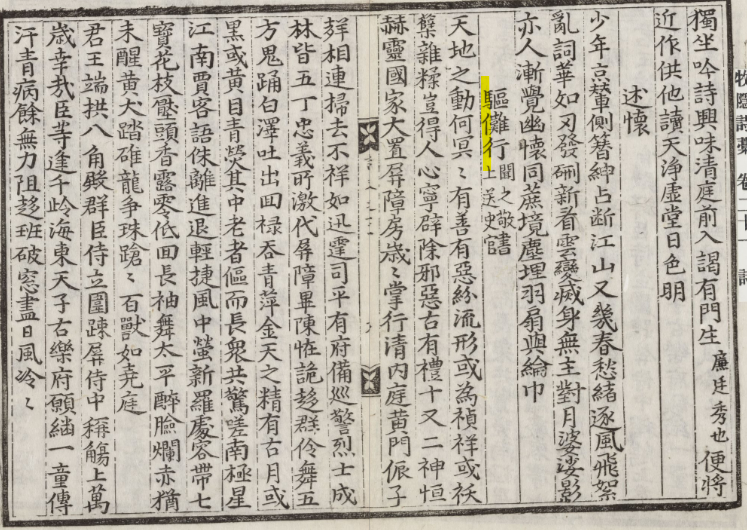 牧隱詩藁 卷二十一 詩
獨坐吟詩興味清庭前入謁有門生廉廷秀也便將
近作供他讀天淨虛堂日色明
述懷
少年京輦側簪紳占断江山又幾春愁緒逐風飛絮
亂詞華如刃發硎新看雲變滅身無主對月婆娑影
亦人漸覺幽懷同蔗境塵埋羽扇與綸巾
驅儺行聞之敬書上送史官
天地之動何冥〻有善有惡紛流形或為禎祥或祅
孽雜糅豈得人心寧辟除邪惡古有禮十又二神恒
赫靈國家大置屏障房歲〻掌行清内庭黄門侲子
聲相連掃去不祥如迅霆司平有府備巡警烈士成
林皆五丁忠義所激代屏障畢陳恠詭趍群伶舞五
方鬼踊白澤吐出回祿吞青萍金天之精有古月或
黑或黄目青熒其中老者傴而長衆共驚嗟南極星
江南賈客語侏離進退輕捷風中螢新羅處容帶七
寶花枝壓頭香露零低回長袖舞太平醉臉爛赤猶
未醒黄犬踏碓龍争珠蹌〻百獸如堯庭
君王端拱八角殿群臣侍立圍踈屏侍中稱觴上萬
歲幸㢤臣等逢千岭海東天子古樂府願継一章傳
汗青病餘無力阻趍班破窓盡日風冷〻